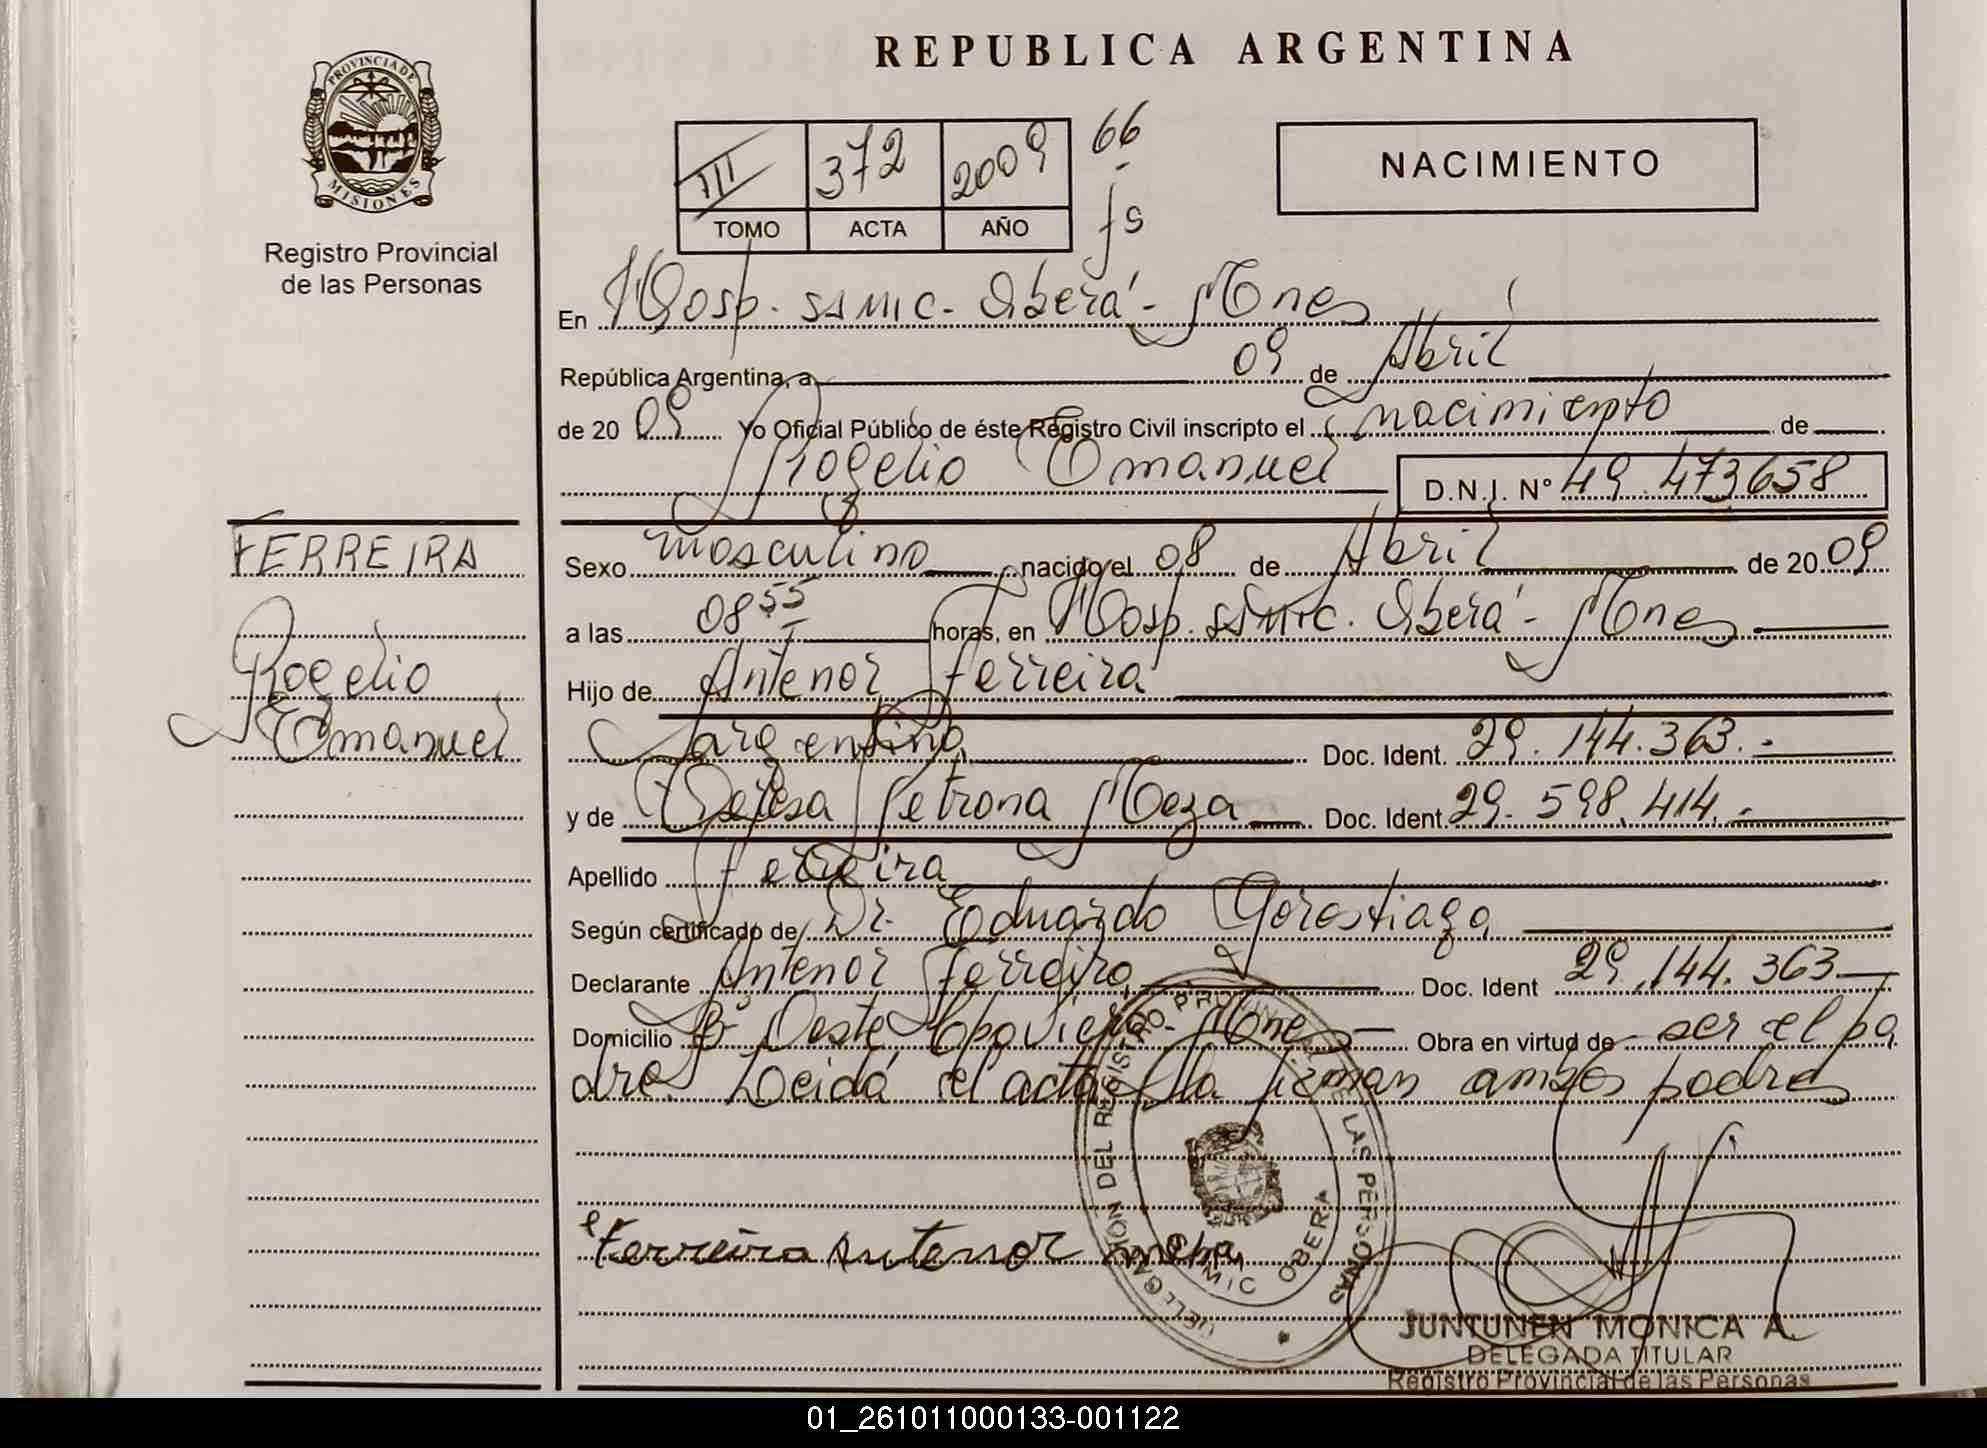 REPUBLICA ARGENTINA
PROVINCIA DE MISIONES
Registro Provincial
de las Personas
III 372 2009 66
TOMO ACTA AÑO fs
NACIMIENTO
En Hosp. SAMIC - Oberá - Mnes
República Argentina, a 09 de Abril
de 2009 Yo Oficial Público de éste Registro Civil inscripto el nacimiento de
Rogelio Emanuel D.N.I. Nº 49.473658
FERREIRA
Rogelio
Emanuel
Sexo masculino nacido el 08 de Abril de 2009
a las 08 55 horas, en Hosp. SAMIC. Oberá - Mnes
Hijo de Antenor Ferreira
argentino Doc. Ident. 29.144.363.-
y de Teresa Petrona Meza Doc. Ident. 29.598.414.-
Apellido Ferreira
Según certificado de Dr. Eduardo Gorostiaga
Declarante Antenor Ferreira Doc. Ident 29.144.363
Domicilio Bº Oeste Mnes Obra en virtud de ser el pa
dre. Leida el acta la firman ambos padres
Ferreira antenor
DELEGACION DEL REGISTRO PROVINCIAL DE LAS PERSONAS
SAMIC OBERA
JUNTUNEN MONICA A.
DELEGADA TITULAR
Registro Provincial de las Personas
01_261011000133-001122